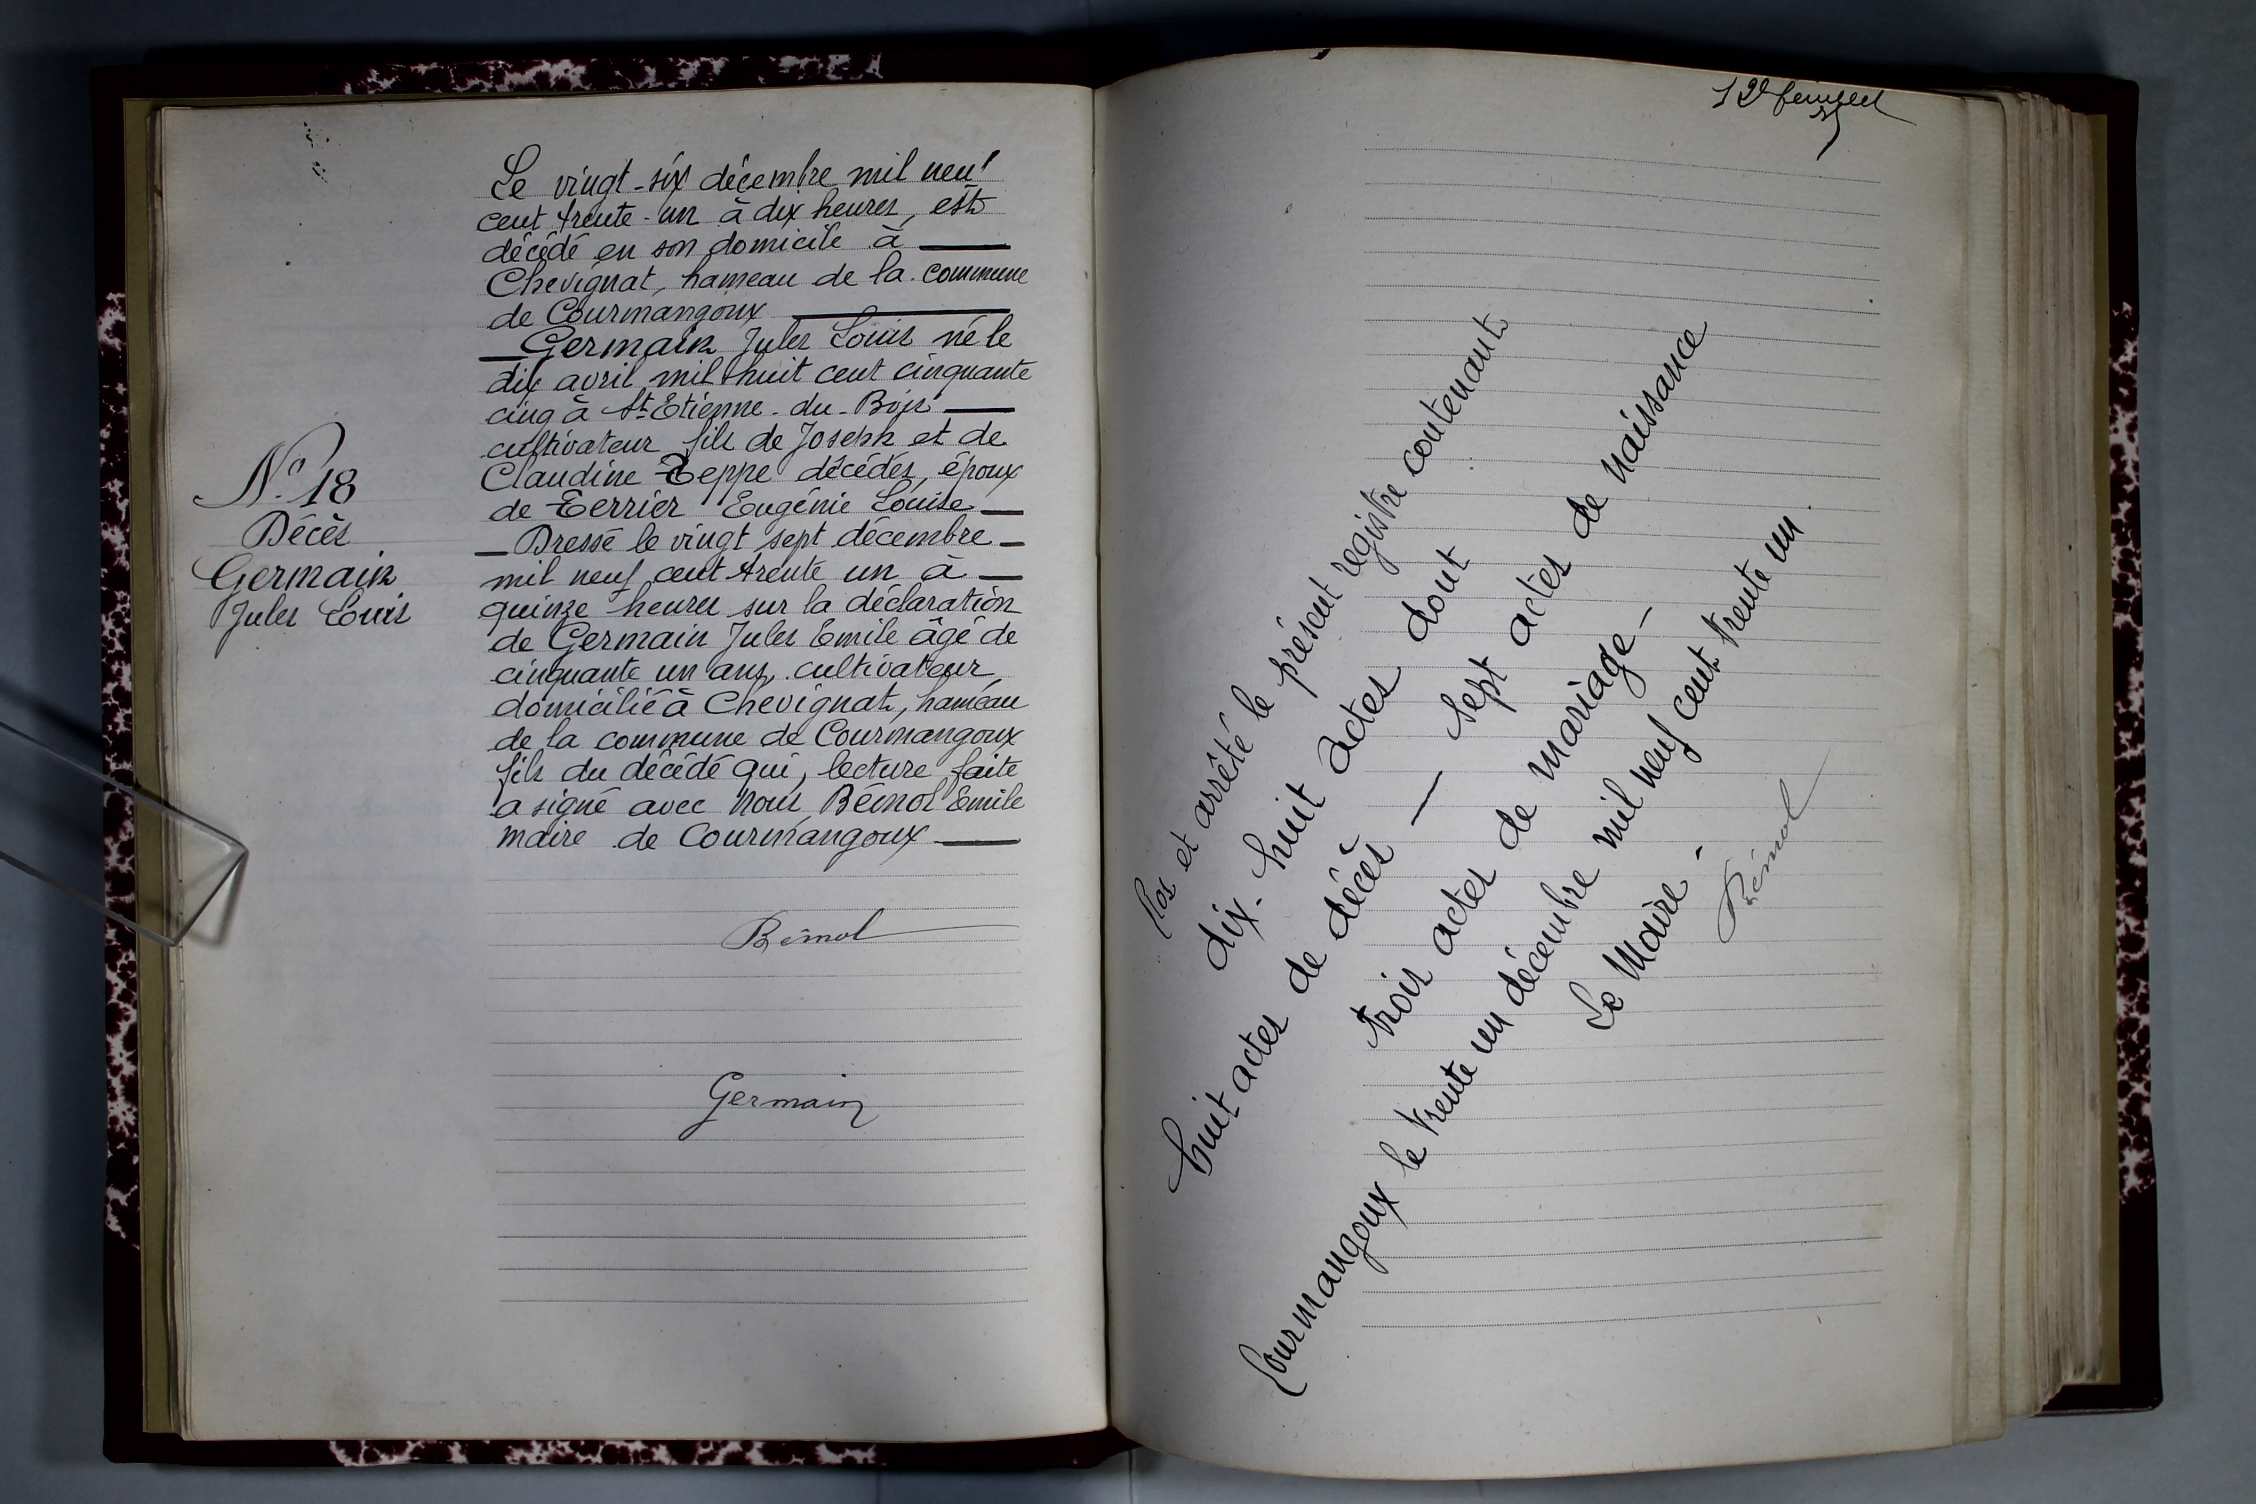 N° 18
Décès
Germain
Jules Louis
Le vingt-six décembre mil neuf
cent trente-un à dix heures, est
décédé en son domicile à
Chevignat, hameau de la commune
de Courmangoux
Germain Jules Louis né le
dix avril mil huit cent cinquante
cinq à St Etienne-du-Bois
cultivateur fils de Joseph et de
Claudine Teppe décédés, époux
de Terrier Eugénie Louise
Dressé le vingt sept décembre
mil neuf cent trente un à
quinze heures sur la déclaration
de Germain Jules Emile âgé de
cinquante un ans, cultivateur
domicilié à Chevignat, hameau
de la commune de Courmangoux
fils du décédé qui, lecture faite
a signé avec Nous Bémol Emile
maire de Courmangoux
Bémol
Germain
Clos et arrêté le présent registre contenant
dix-huit actes dont
huit actes de décès — sept actes de naissance
trois actes de mariage -
Courmangoux le trente un décembre mil neuf cent trente un
Le Maire -
Bémol